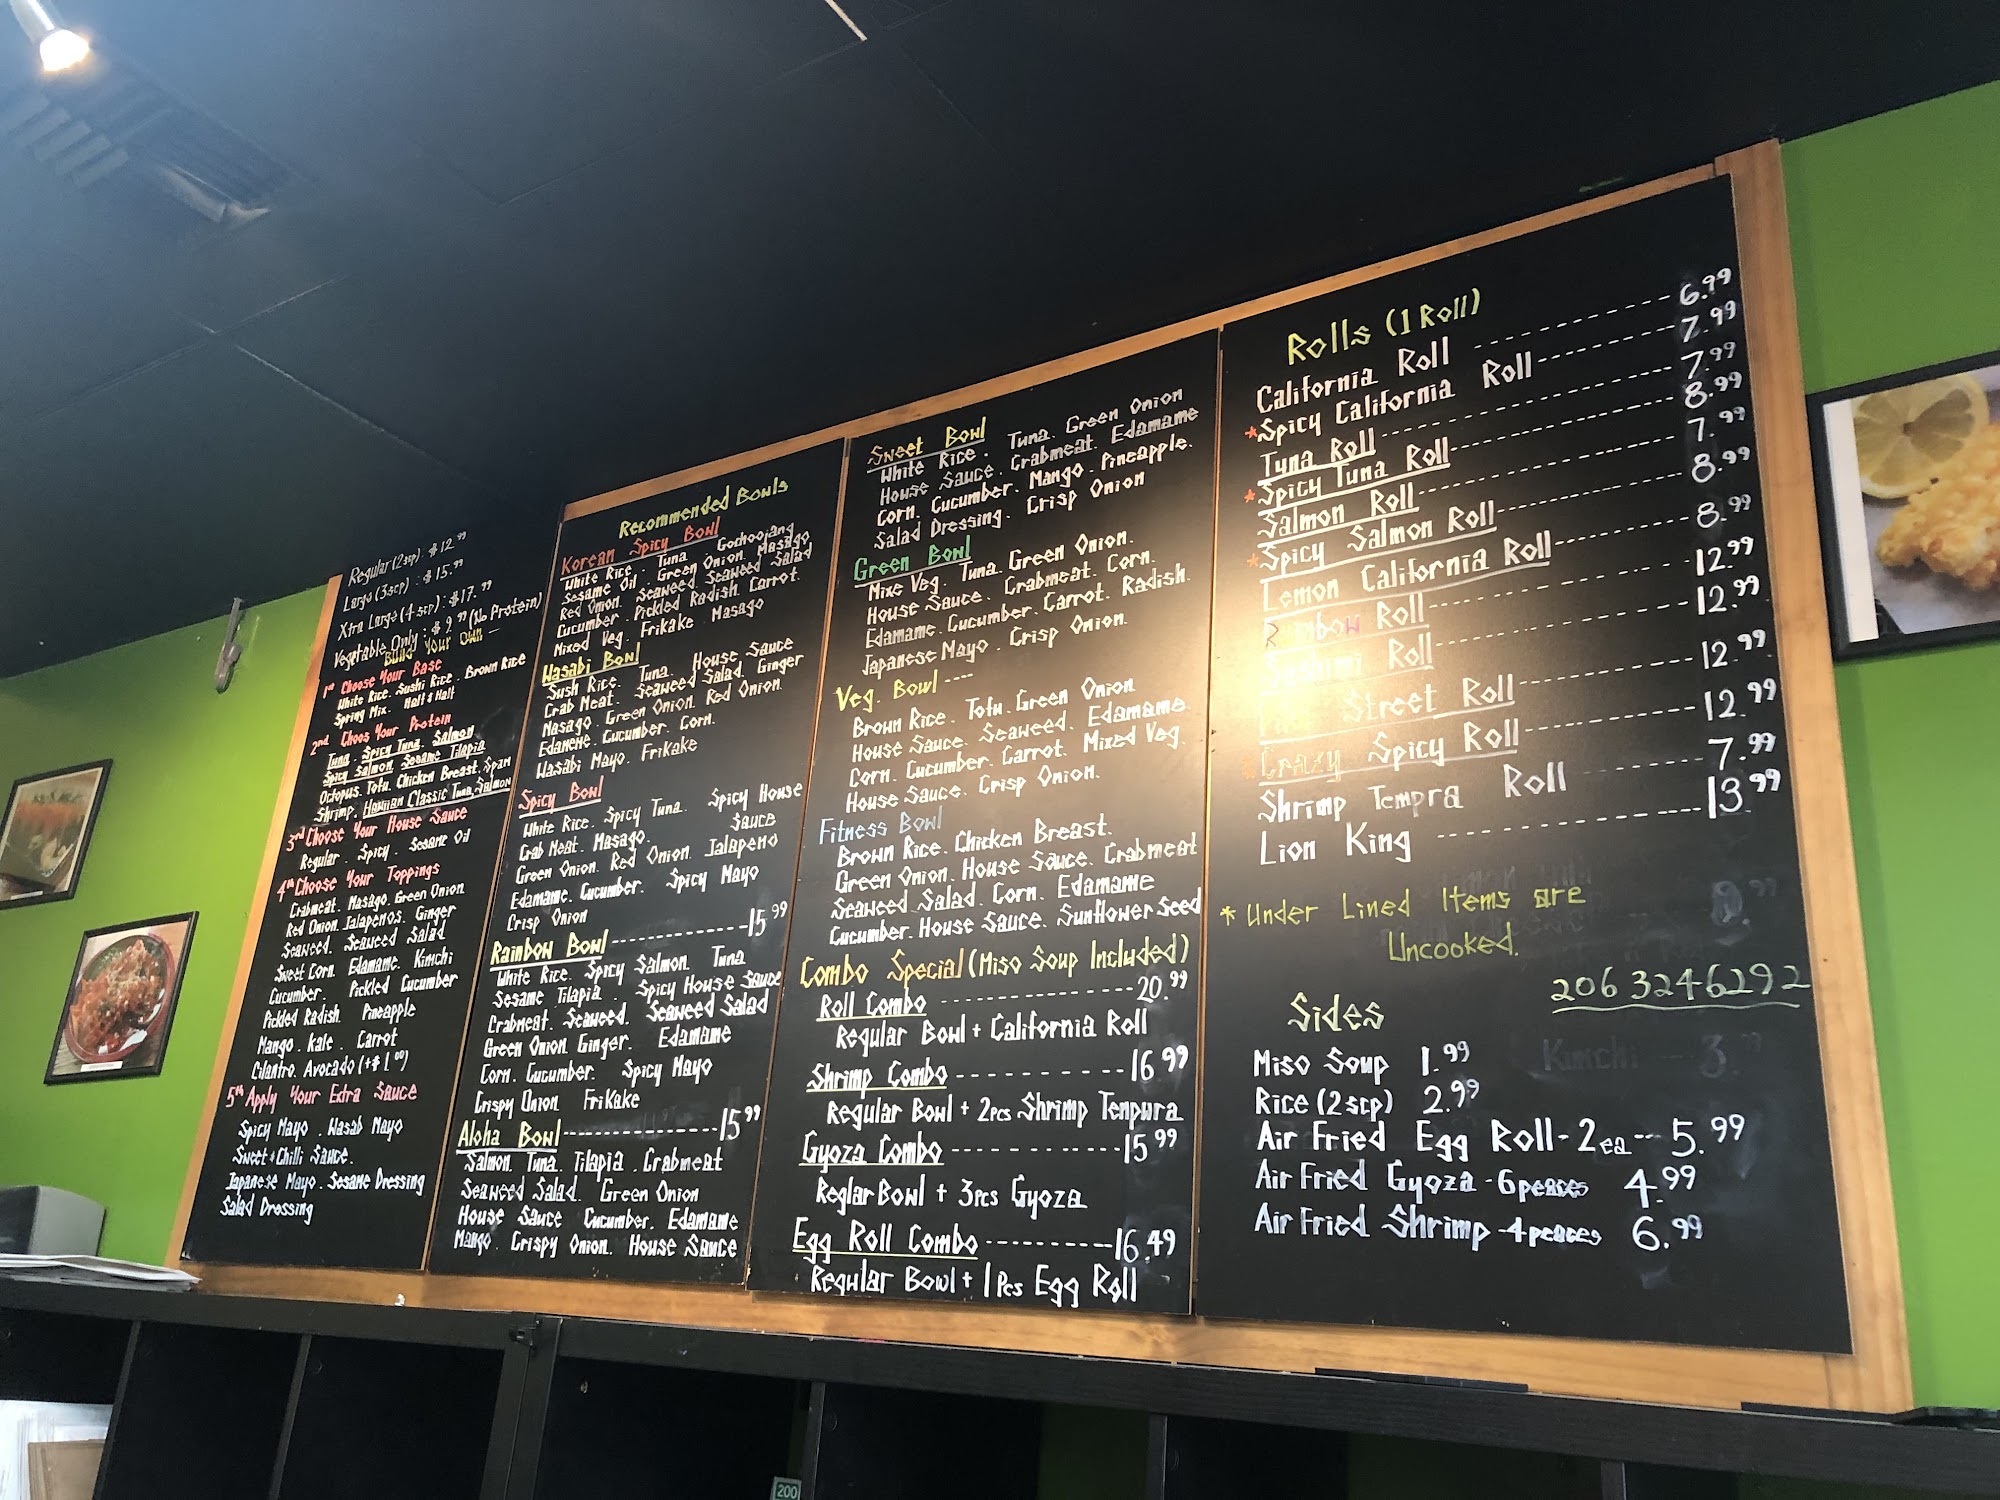 Regular (2scp) : $12.99
Large (3scp) : $15.99
Xtra Large (4 scp) : $17.99
Vegetable Only : $9.99 (No Protein)
Build Your Own
1st Choose Your Base
White Rice. Sushi Rice. Brown Rice
Spring Mix. Half & Half
2nd Choos Your Protein
Tuna. Spicy Tuna. Salmon
Spicy Salmon Sesame Tilapia
Octopus. Tofu. Chicken Breast. Spam
Shrimp. Hawiian Classic Tuna, Salmon
3rd Choose Your House Sauce
Regular. Spicy. Sesame Oil
4th Choose Your Toppings
Crabmeat. Masago. Green Onion
Red Onion. Jalapenos. Ginger
Seaweed. Seaweed Salad
Sweet Corn. Edamame. Kimchi
Cucumber. Pickled Cucumber
Pickled Radish Pineapple
Mango. Kale. Carrot
Cilantro. Avocado (+$1.00)
5th Apply Your Extra Sauce
Spicy Mayo. Wasab Mayo
Sweet & Chilli Sauce.
Japanese Mayo. Sesame Dressing
Salad Dressing
Recommended Bowls
Korean Spicy Bowl
White Rice. Tuna Gochoojang
Sesame Oil. Green Onion. Masago
Red Onion. Seaweed. Seaweed Salad
Cucumber. Pickled Radish. Carrot.
Mixed Veg. Frikake Masago
Wasabi Bowl
Sush Rice. Tuna. House Sauce
Crab Meat. Seaweed Salad. Ginger
Masago. Green Onion. Red Onion.
Edameme. Cucumber. Corn.
Wasabi Mayo. Frikake
Spicy Bowl
White Rice. Spicy Tuna. Spicy House
Sauce
Crab Meat. Masago.
Green Onion. Red Onion. Jalapeno
Edamame. Cucumber. Spicy Mayo
Crisp Onion
Rainbow Bowl 15.99
White Rice. Spicy Salmon. Tuna
Sesame Tilapia. Spicy House Sauce
Crabmeat. Seaweed. Seaweed Salad
Green Onion. Ginger. Edamame
Corn. Cucumber. Spicy Mayo
Crispy Onion. Frikake
Aloha Bowl 15.99
Salmon. Tuna. Tilapia. Crabmeat
Seaweed Salad. Green Onion
House Sauce Cucumber. Edamame
Mango. Crispy Onion. House Sauce
Sweet Bowl
White Rice. Tuna. Green Onion
House Sauce. Crabmeat. Edamame
Corn. Cucumber. Mango. Pineapple.
Salad Dressing. Crisp Onion
Green Bowl
Mixe Veg. Tuna. Green Onion.
House Sauce. Crabmeat. Corn.
Edamame. Cucumber. Carrot. Radish.
Japanese Mayo. Crisp Onion.
Veg. Bowl ----
Brown Rice. Tofu. Green Onion
House Sauce. Seaweed. Edamame.
Corn. Cucumber. Carrot. Mixed Veg.
House Sauce. Crisp Onion.
Fitness Bowl
Brown Rice. Chicken Breast.
Green Onion. House Sauce. Crabmeat
Seaweed Salad. Corn. Edamame
Cucumber. House Sauce. Sunflower Seed
Combo Special (Miso Soup Included)
Roll Combo 20.99
Regular Bowl + California Roll
Shrimp Combo 16.99
Regular Bowl + 2pcs Shrimp Tenpura
Gyoza Combo 15.99
Reglar Bowl + 3pcs Gyoza
Egg Roll Combo 16.49
Regular Bowl + 1 Pcs Egg Roll
Rolls (1 Roll)
California Roll 6.99
*Spicy California Roll 7.99
Tuna Roll 7.99
*Spicy Tuna Roll 8.99
Salmon Roll 7.99
*Spicy Salmon Roll 8.99
Lemon California Roll 8.99
Rainbow Roll 12.99
Sashimi Roll 12.99
Street Roll 12.99
Crazy Spicy Roll 12.99
Shrimp Tempra Roll 7.99
Lion King 13.99
* Under Lined Items are
Uncooked.
206 3246292
Sides
Miso Soup 1.99
Kimchi 3.
Rice (2 scp) 2.99
Air Fried Egg Roll - 2 ea -- 5.99
Air Fried Gyoza - 6 peaces 4.99
Air Fried Shrimp - 4 peaces 6.99
200